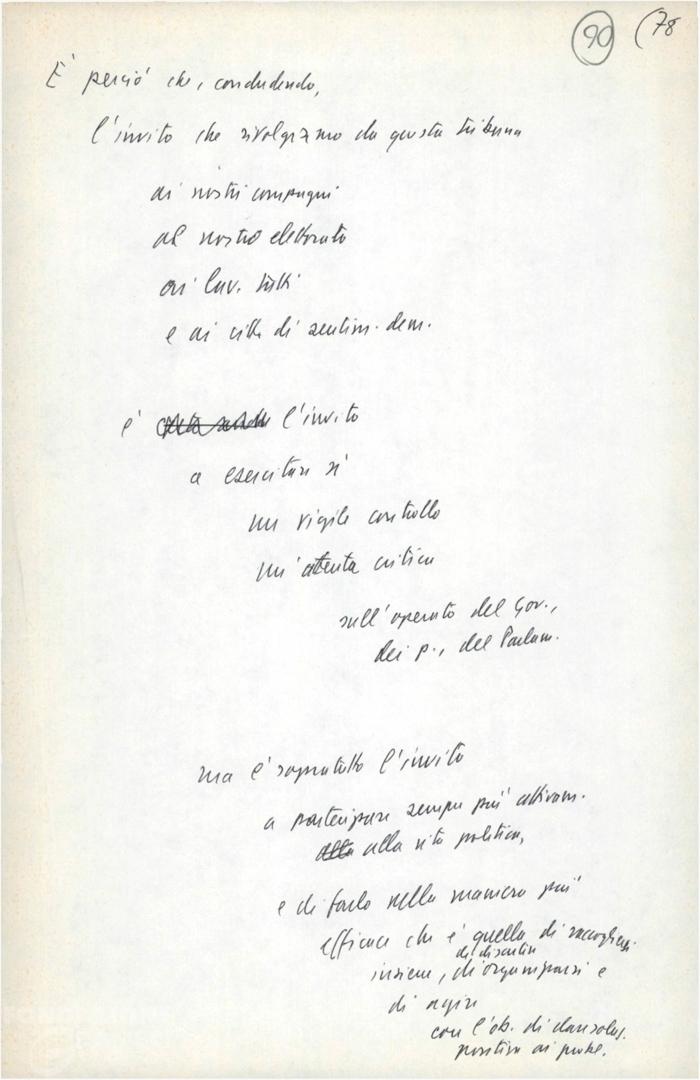 90 (78
È perciò che, concludendo,
l'invito che rivolgiamo da questa tribuna
ai nostri compagni
al nostro elettorato
ai lav. tutti
e ai citt. di sentim. dem.
è l'invito
a esercitare sì
un vigile controllo
un'attenta critica
sull'operato del Gov.,
dei p., del Parlam.
ma è sopratutto l'invito
a partecipare sempre più attivam.
alla vita politica,
e di farlo nella maniera più
efficace che è quella di raccogliersi
di discutere
insieme, di organizzarsi e
di agire
con l'ob. di dare soluz.
positiva ai probl.